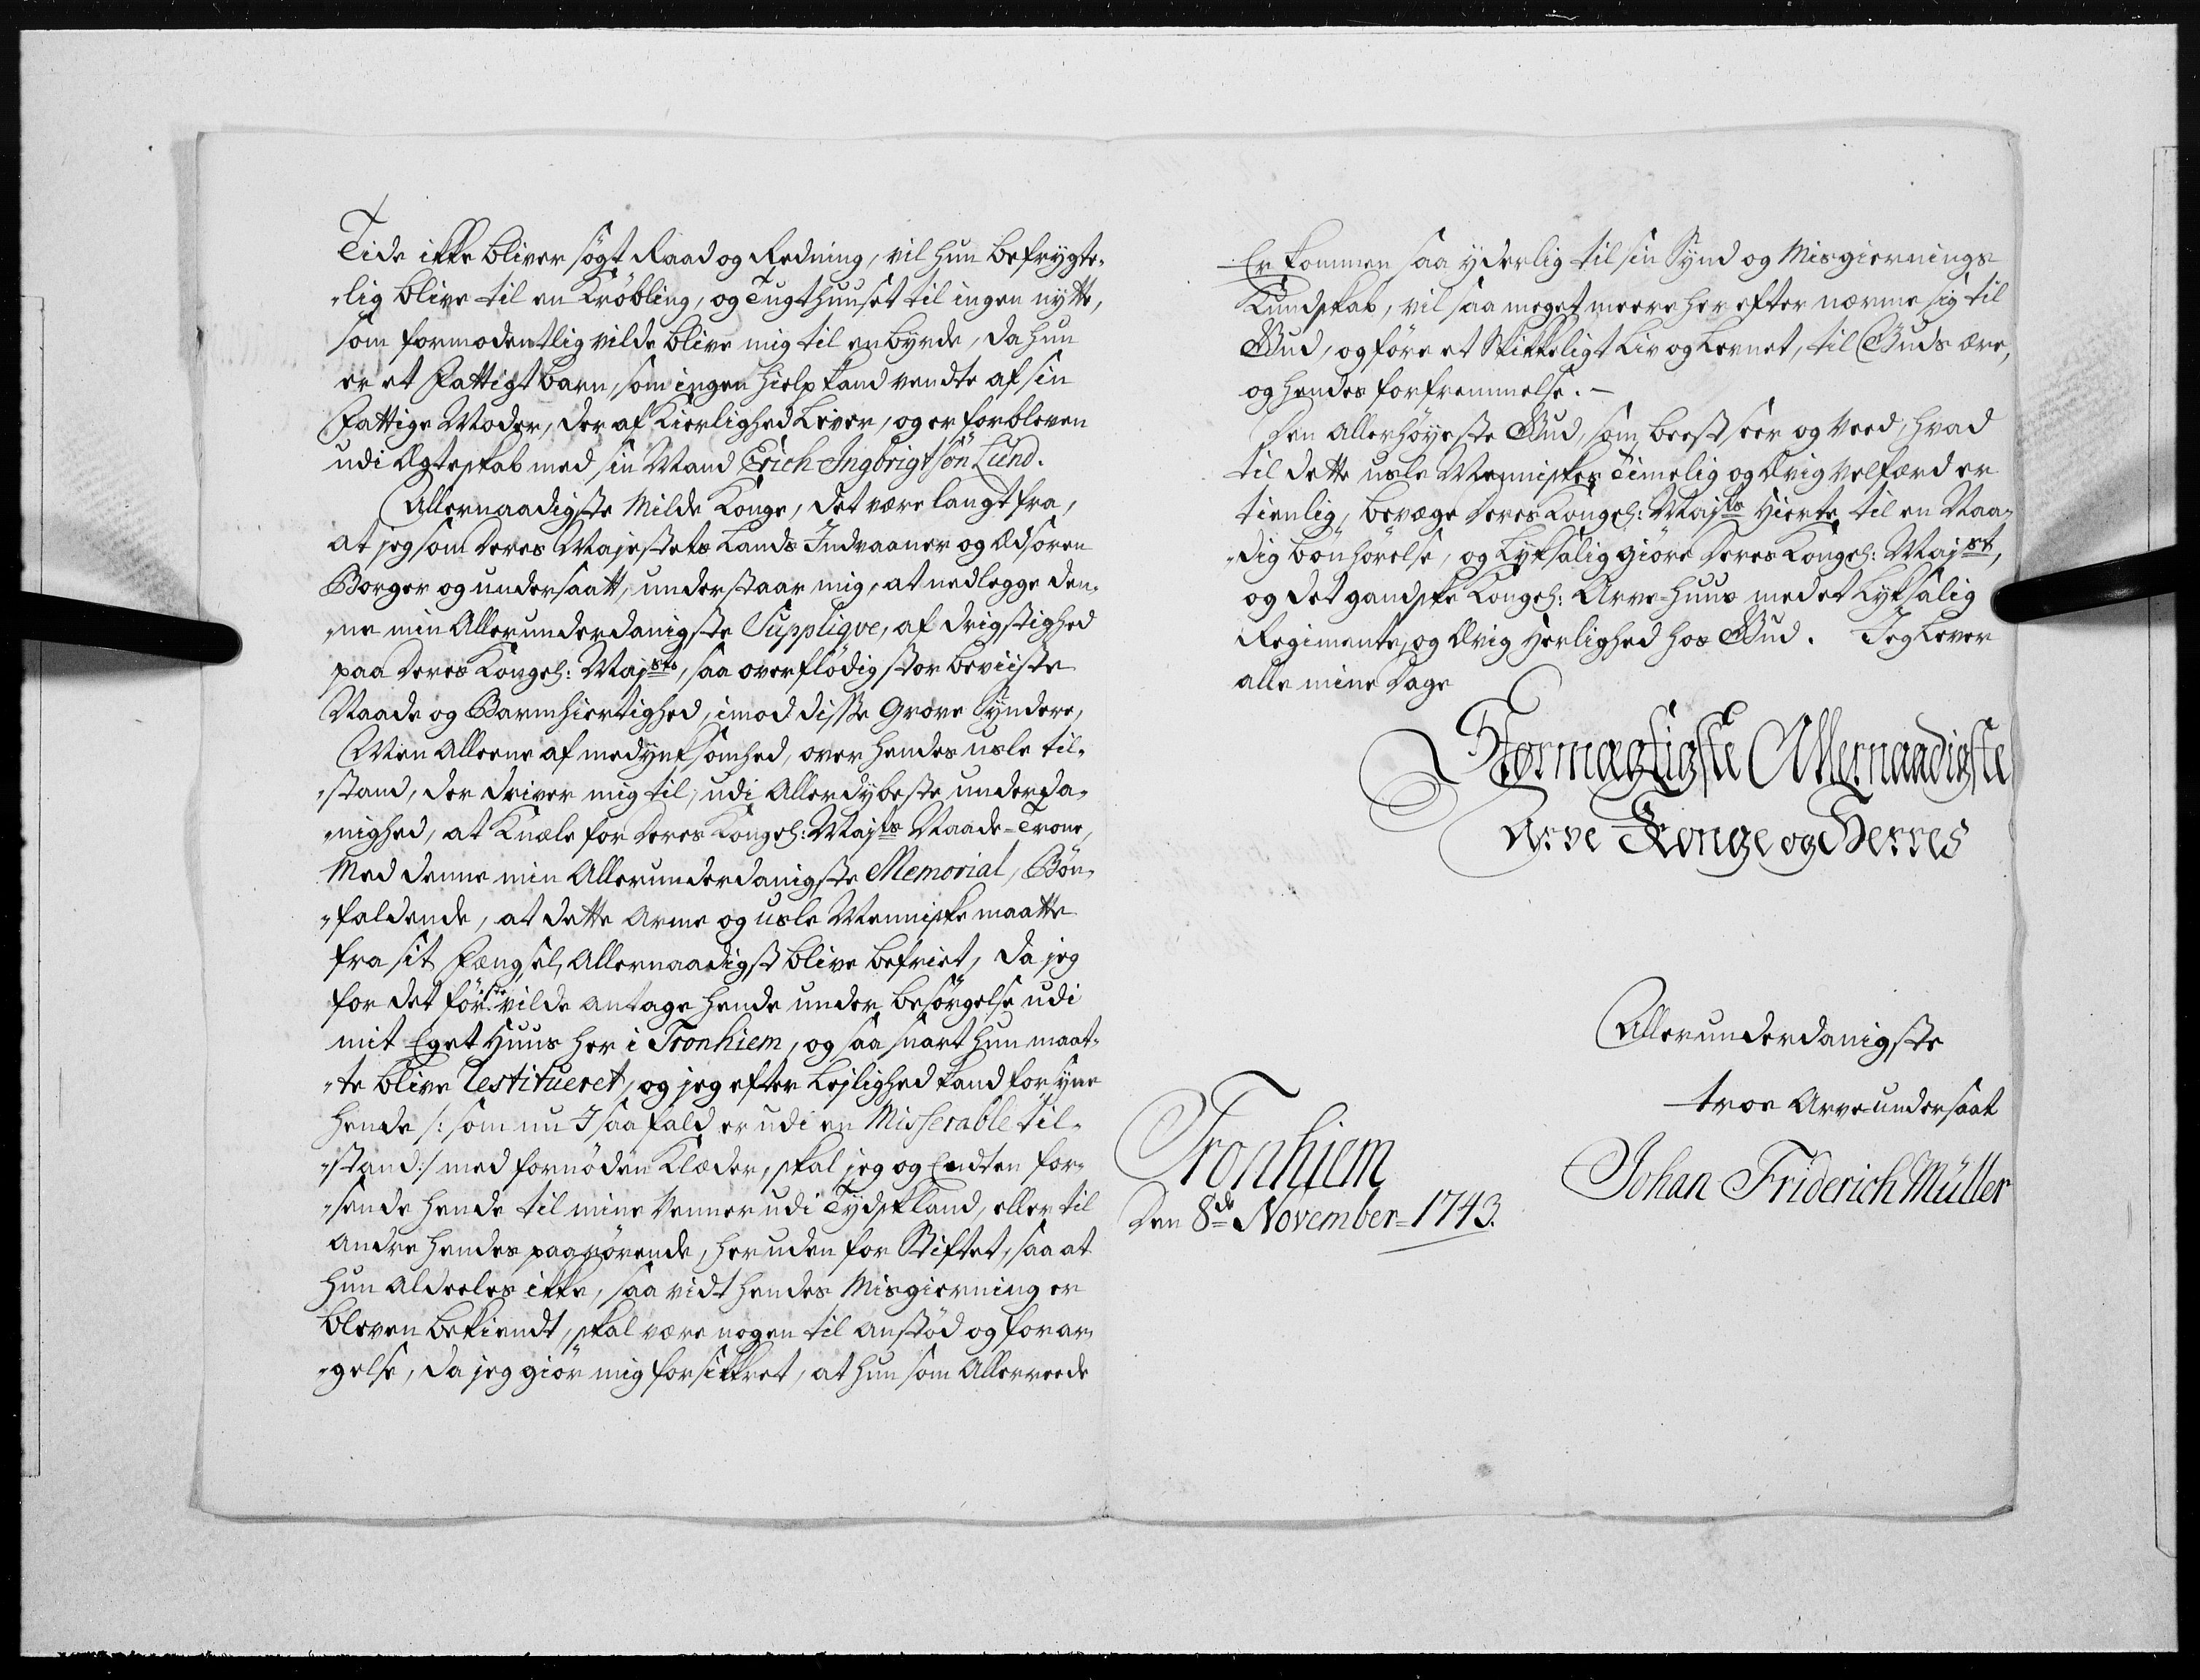 Tide ikke bliver søgt Raad og Redning, vil hun befrygte-
"lig blive til en Krøbling, og Tugthuuset til ingen nytte,
som formodentlig vilde blive mig til en byrde, da hun
er et Fattigt barn, som ingen hielp kand vendte af sin
Fattige Moder, der af Kierlighed Lever, og er forbleven
udi Ægteskab med sin Mand Erich Ingbrigtsön Lund.
Allernaadigste Milde Konge, det være langt fra,
at jeg som Deres Majestets Lands Indvaaner og Edsoren
Borger og undersaatt, understaar mig, at nedlegge den-
"ne min Allerunderdanigste Supplique, af drigstighed
paa Deres Kongel: Majsts, saa overflödig stor beviiste
Naade og Barmhiertighed, imod disse Grove Syndere,
Men Alleene af medynksomhed, over hendes usle til-
"stand, der driver mig til, udi Allerdybeste underda-
"nighed, at Knæle for Deres Kongel: Majts Naade-Trone,
Med denne min Allerunderdanigste Memorial, Bön-
"faldende, at dette Arme og usle Menniske maatte
fra sit Fængsel, Allernaadigst blive befriet, da jeg
for det förste vilde antage hende under besörgelse udi
mit Eget Huus her i Tronhiem, og saa snart hun maat-
"te blive restitueret, og jeg efter Lejlighed kand forsyne
hende /: som nu I saa fald er udi en Misserable til-
"stand :/ med fornöden Klæder, skal jeg og Endten for-
"sende hende til mine Venner udi Tydskland, eller til
andre hendes paarörende, her uden for Stiftet, saa at
hun Aldeeles ikke, saa vidt hendes Misgierning er
bleven bekiendt, skal være nogen til anstöd og forar-
"gelse, da jeg giör mig forsikkret, at hun som Allerreede
Er kommen saa yderlig til sin Synd og Misgiernings
Kundskab, vil saa meget meere her efter nærme sig til
Gud, og före et Skikkeligt Liv og Levnet, til Guds ære,
og hendes forfremmelse. –
Den Allerhöyeste Gud, som beest seer og Veed, hvad
til dette usle Menniskes Timelig og Ævig Velfærd er
tienlig, bevæge Deres Kongel: Majts Hierte til en Naa-
"dig bönhörelse, og Lyksalig giöre Deres Kongel: Majst,
og det gandske Kongel: Arve-Huus med et Lyksalig
Regimente, og Ævig Herlighed hos Gud. Jeg Lever
alle mine Dage
Stormægtigste Allernaadigste
Arve Konge og Herres
Allerunderdanigste
troe Arve undersaat
Johan Friderich Müller
Tronhiem
Den 8de November 1743.